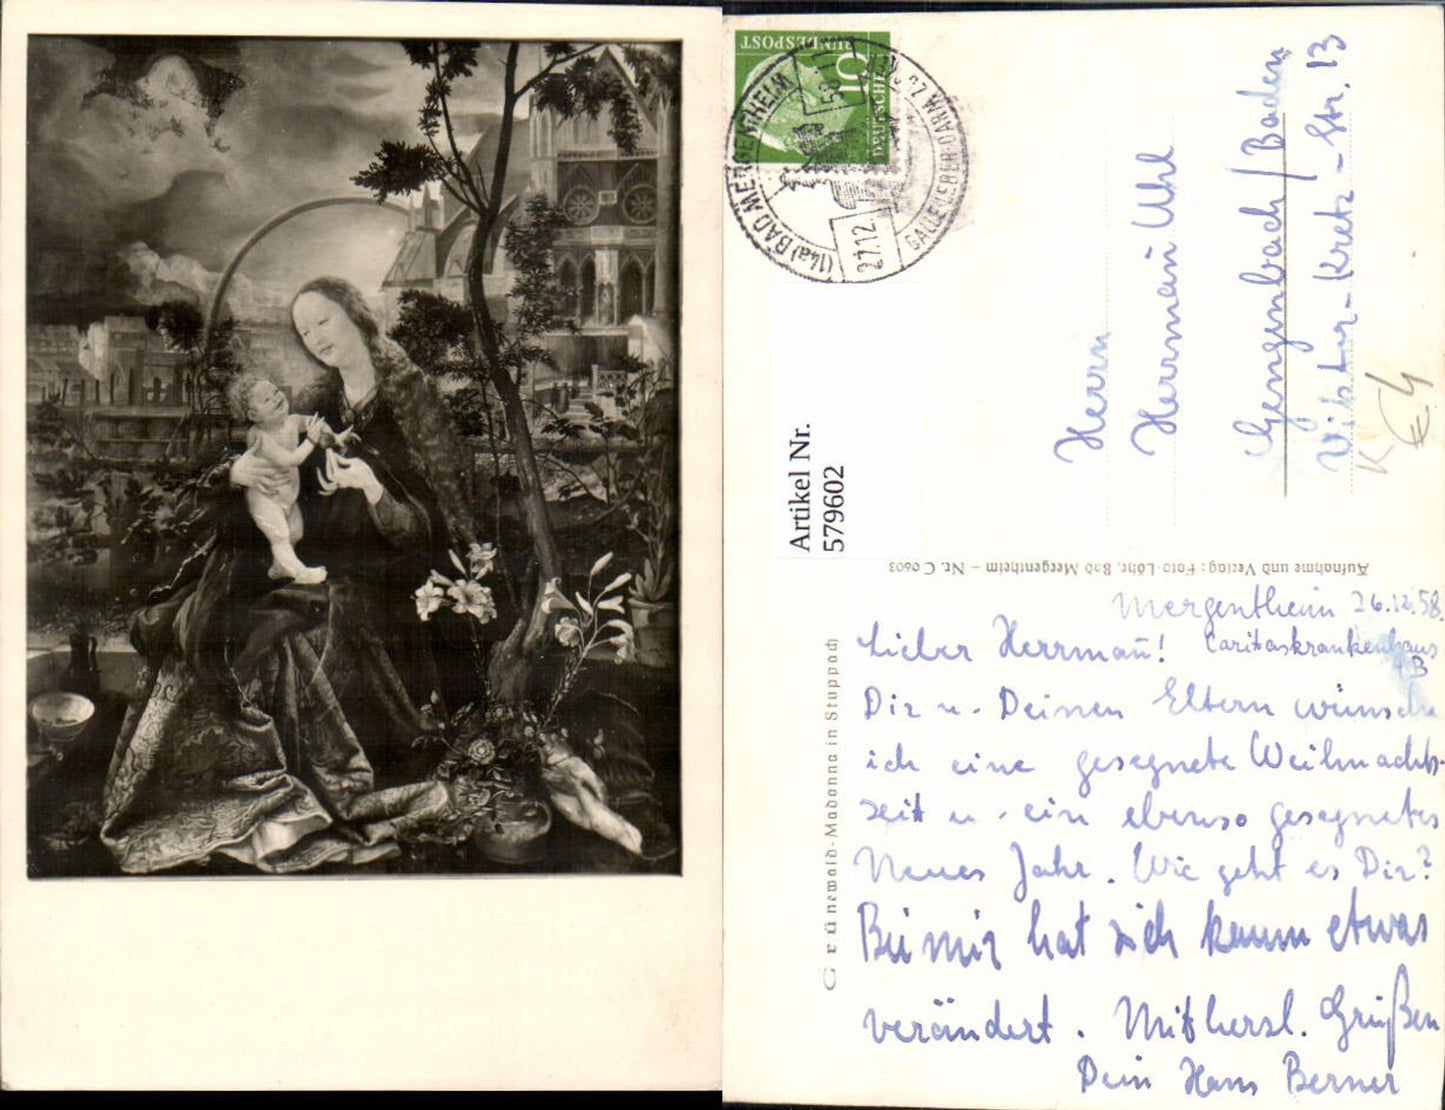 DEUTSCHE
BUNDESPOST
10
(14a) BAD MERGENTHEIM
27.12.
GALLE-LEBER-DARM
Artikel Nr.
579602
Herrn
Hermann Uhl
Gengenbach / Baden
Viktor-Kretz-Str. 13
K €4
Aufnahme und Verlag: Foto-Löhr, Bad Mergentheim – Nr. C 0603
Grünewald-Madonna in Stuppach
Mergentheim 26.12.58.
Caritaskrankenhaus
Lieber Herrmann!
Dir u. Deinen Eltern wünsche
ich eine gesegnete Weihnachts-
zeit u. ein ebenso gesegnetes
Neues Jahr. Wie geht es Dir?
Bei mir hat sich kaum etwas
verändert. Mit herzl. Grüßen
Dein Hans Berner